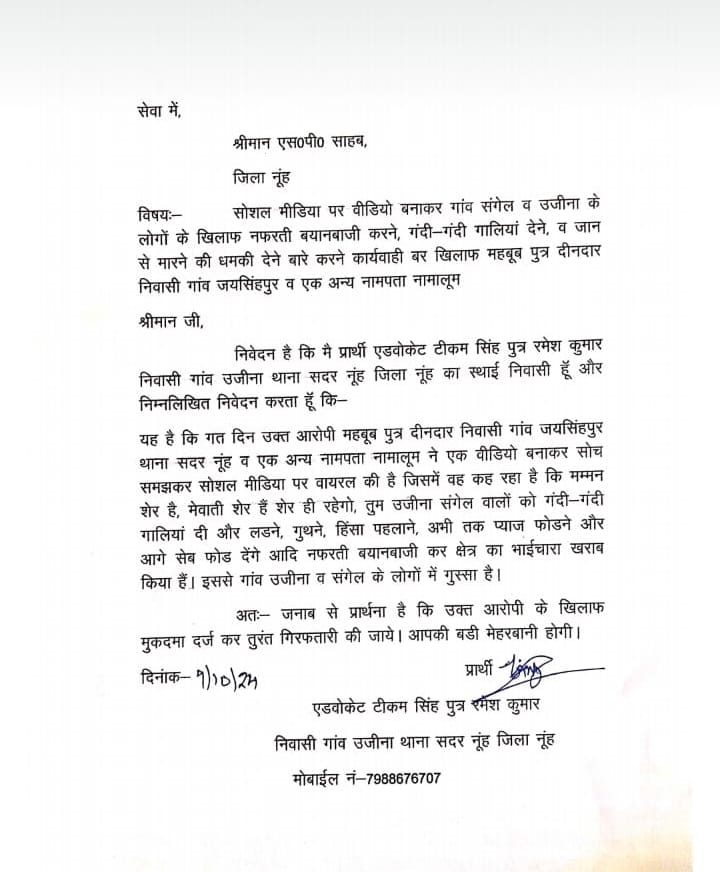 सेवा में,
श्रीमान एस0पी0 साहब,
जिला नूंह
विषयः– सोशल मीडिया पर वीडियो बनाकर गांव संगेल व उजीना के
लोगों के खिलाफ नफरती बयानबाजी करने, गंदी–गंदी गालियां देने, व जान
से मारने की धमकी देने बारे करने कार्यवाही बर खिलाफ महबूब पुत्र दीनदार
निवासी गांव जयसिंहपुर व एक अन्य नामपता नामालूम
श्रीमान जी,
निवेदन है कि मै प्रार्थी एडवोकेट टीकम सिंह पुत्र रमेश कुमार
निवासी गांव उजीना थाना सदर नूंह जिला नूंह का स्थाई निवासी हूॅ और
निम्नलिखित निवेदन करता हूॅ कि–
यह है कि गत दिन उक्त आरोपी महबूब पुत्र दीनदार निवासी गांव जयसिंहपुर
थाना सदर नूंह व एक अन्य नामपता नामालूम ने एक वीडियो बनाकर सोच
समझकर सोशल मीडिया पर वायरल की है जिसमें वह कह रहा है कि मम्मन
शेर है, मेवाती शेर हैं शेर ही रहेगो, तुम उजीना संगेल वालों को गंदी–गंदी
गालियां दी और लडने, गुथने, हिंसा पहलाने, अभी तक प्याज फोडने और
आगे सेब फोड देंगे आदि नफरती बयानबाजी कर क्षेत्र का भाईचारा खराब
किया हैं। इससे गांव उजीना व संगेल के लोगों में गुस्सा है।
अतः– जनाब से प्रार्थना है कि उक्त आरोपी के खिलाफ
मुकदमा दर्ज कर तुरंत गिरफतारी की जाये। आपकी बडी मेहरबानी होगी।
दिनांक– 9/10/24 प्रार्थी
एडवोकेट टीकम सिंह पुत्र रमेश कुमार
निवासी गांव उजीना थाना सदर नूंह जिला नूंह
मोबाईल नं–7988676707